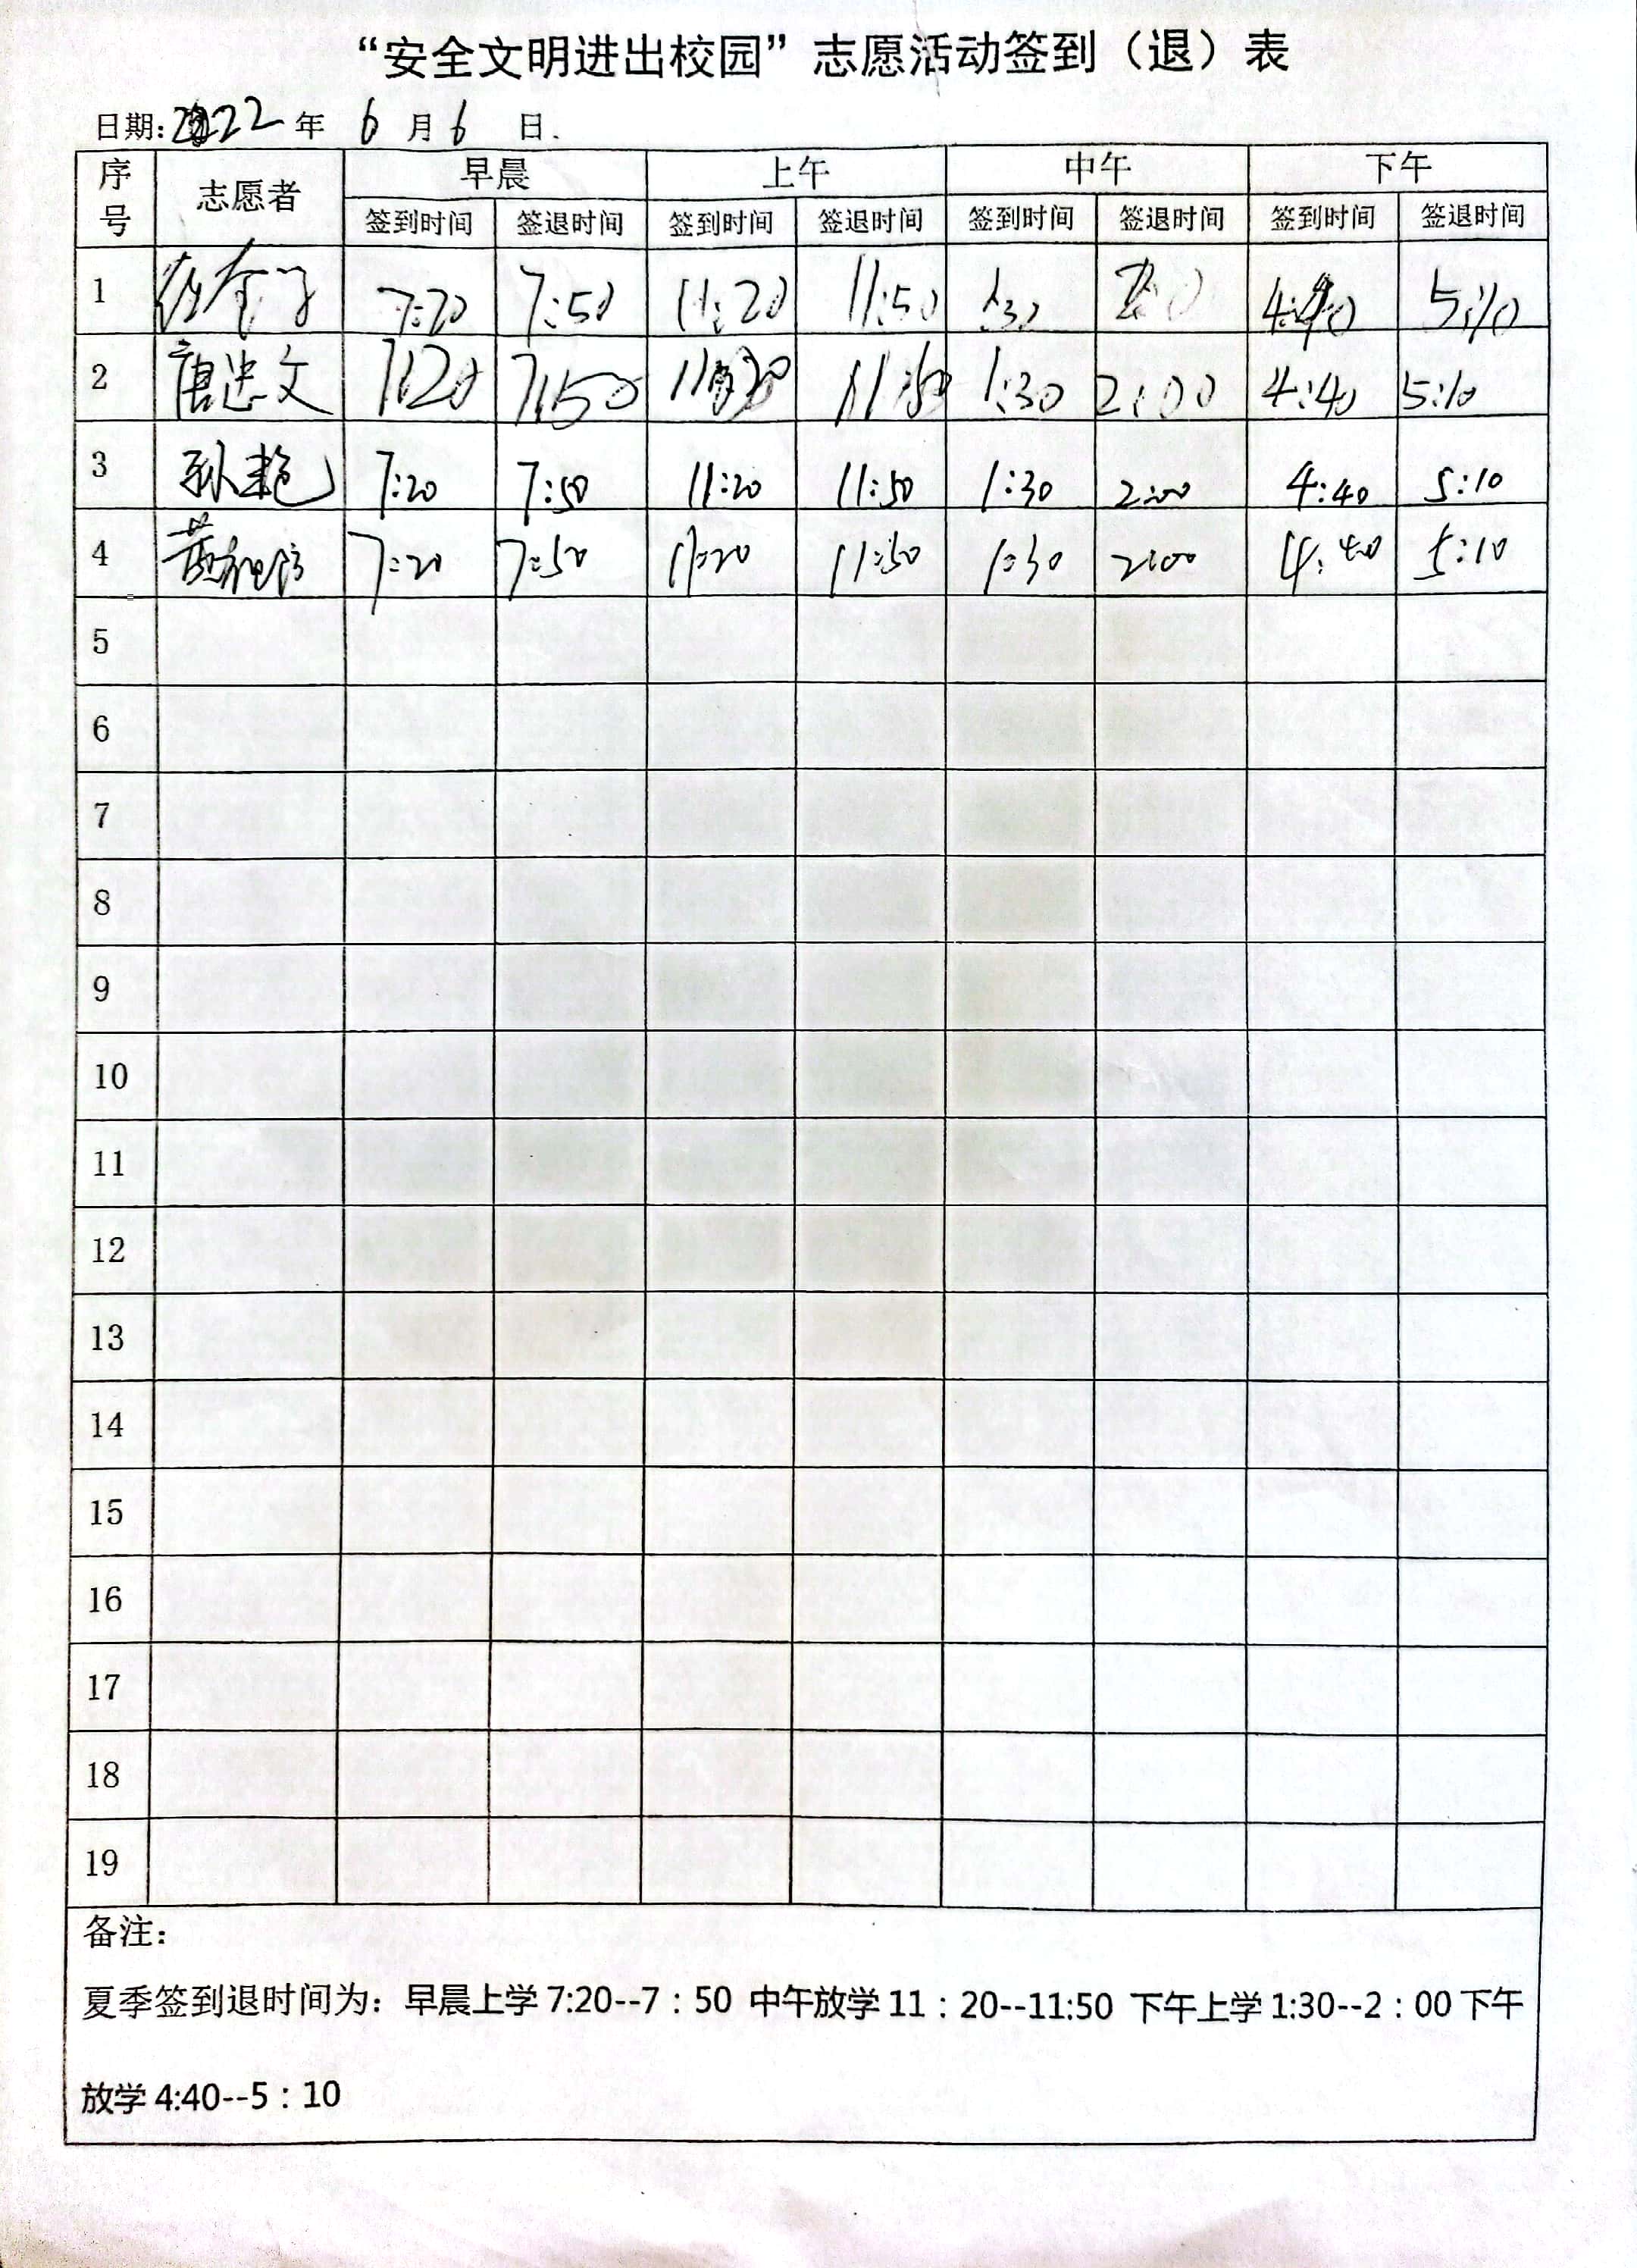 “安全文明进出校园”志愿活动签到（退）表
日期:2022年 6月6 日.
序号 志愿者 早晨 上午 中午 下午
签到时间 签退时间 签到时间 签退时间 签到时间 签退时间 签到时间 签退时间
1 7:20 7:50 11:20 11:50 1:30 4:40 5:10
2 唐忠文 7:20 7:50 11:20 11:50 1:30 2:00 4:40 5:10
3 孙艳 7:20 7:50 11:20 11:50 1:30 2:00 4:40 5:10
4 黄 7:20 7:50 11:20 11:50 1:30 2:00 4:40 5:10
5
6
7
8
9
10
11
12
13
14
15
16
17
18
19
备注：
夏季签到退时间为：早晨上学 7:20--7：50 中午放学 11：20--11:50 下午上学 1:30--2：00 下午
放学 4:40--5：10